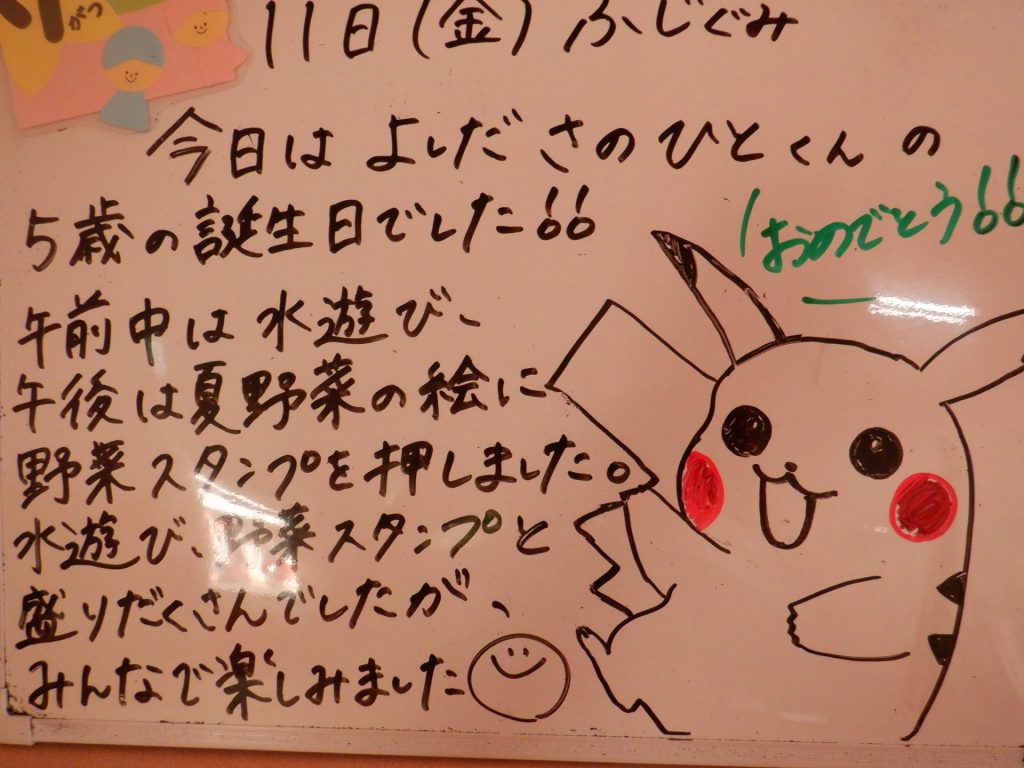 がつ
11日(金)ふじぐみ
今日は よしだ さのひとくんの
5歳の誕生日でした!!
おめでとう!!
午前中は水遊び、
午後は夏野菜の絵に
野菜スタンプを押しました。
水遊び、野菜スタンプと
盛りだくさんでしたが、
みんなで楽しみました